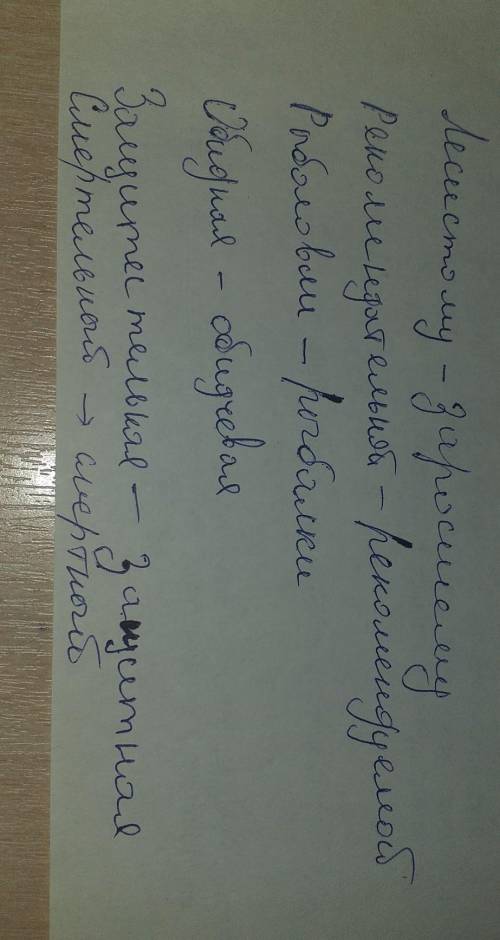 Лесистому - Заросшему
Рекомендательной - рекомендуемой
Рыболовли - рыбалки
Обидная - обидчевая
Защитестельная - Защитная
Смертельный → смертный